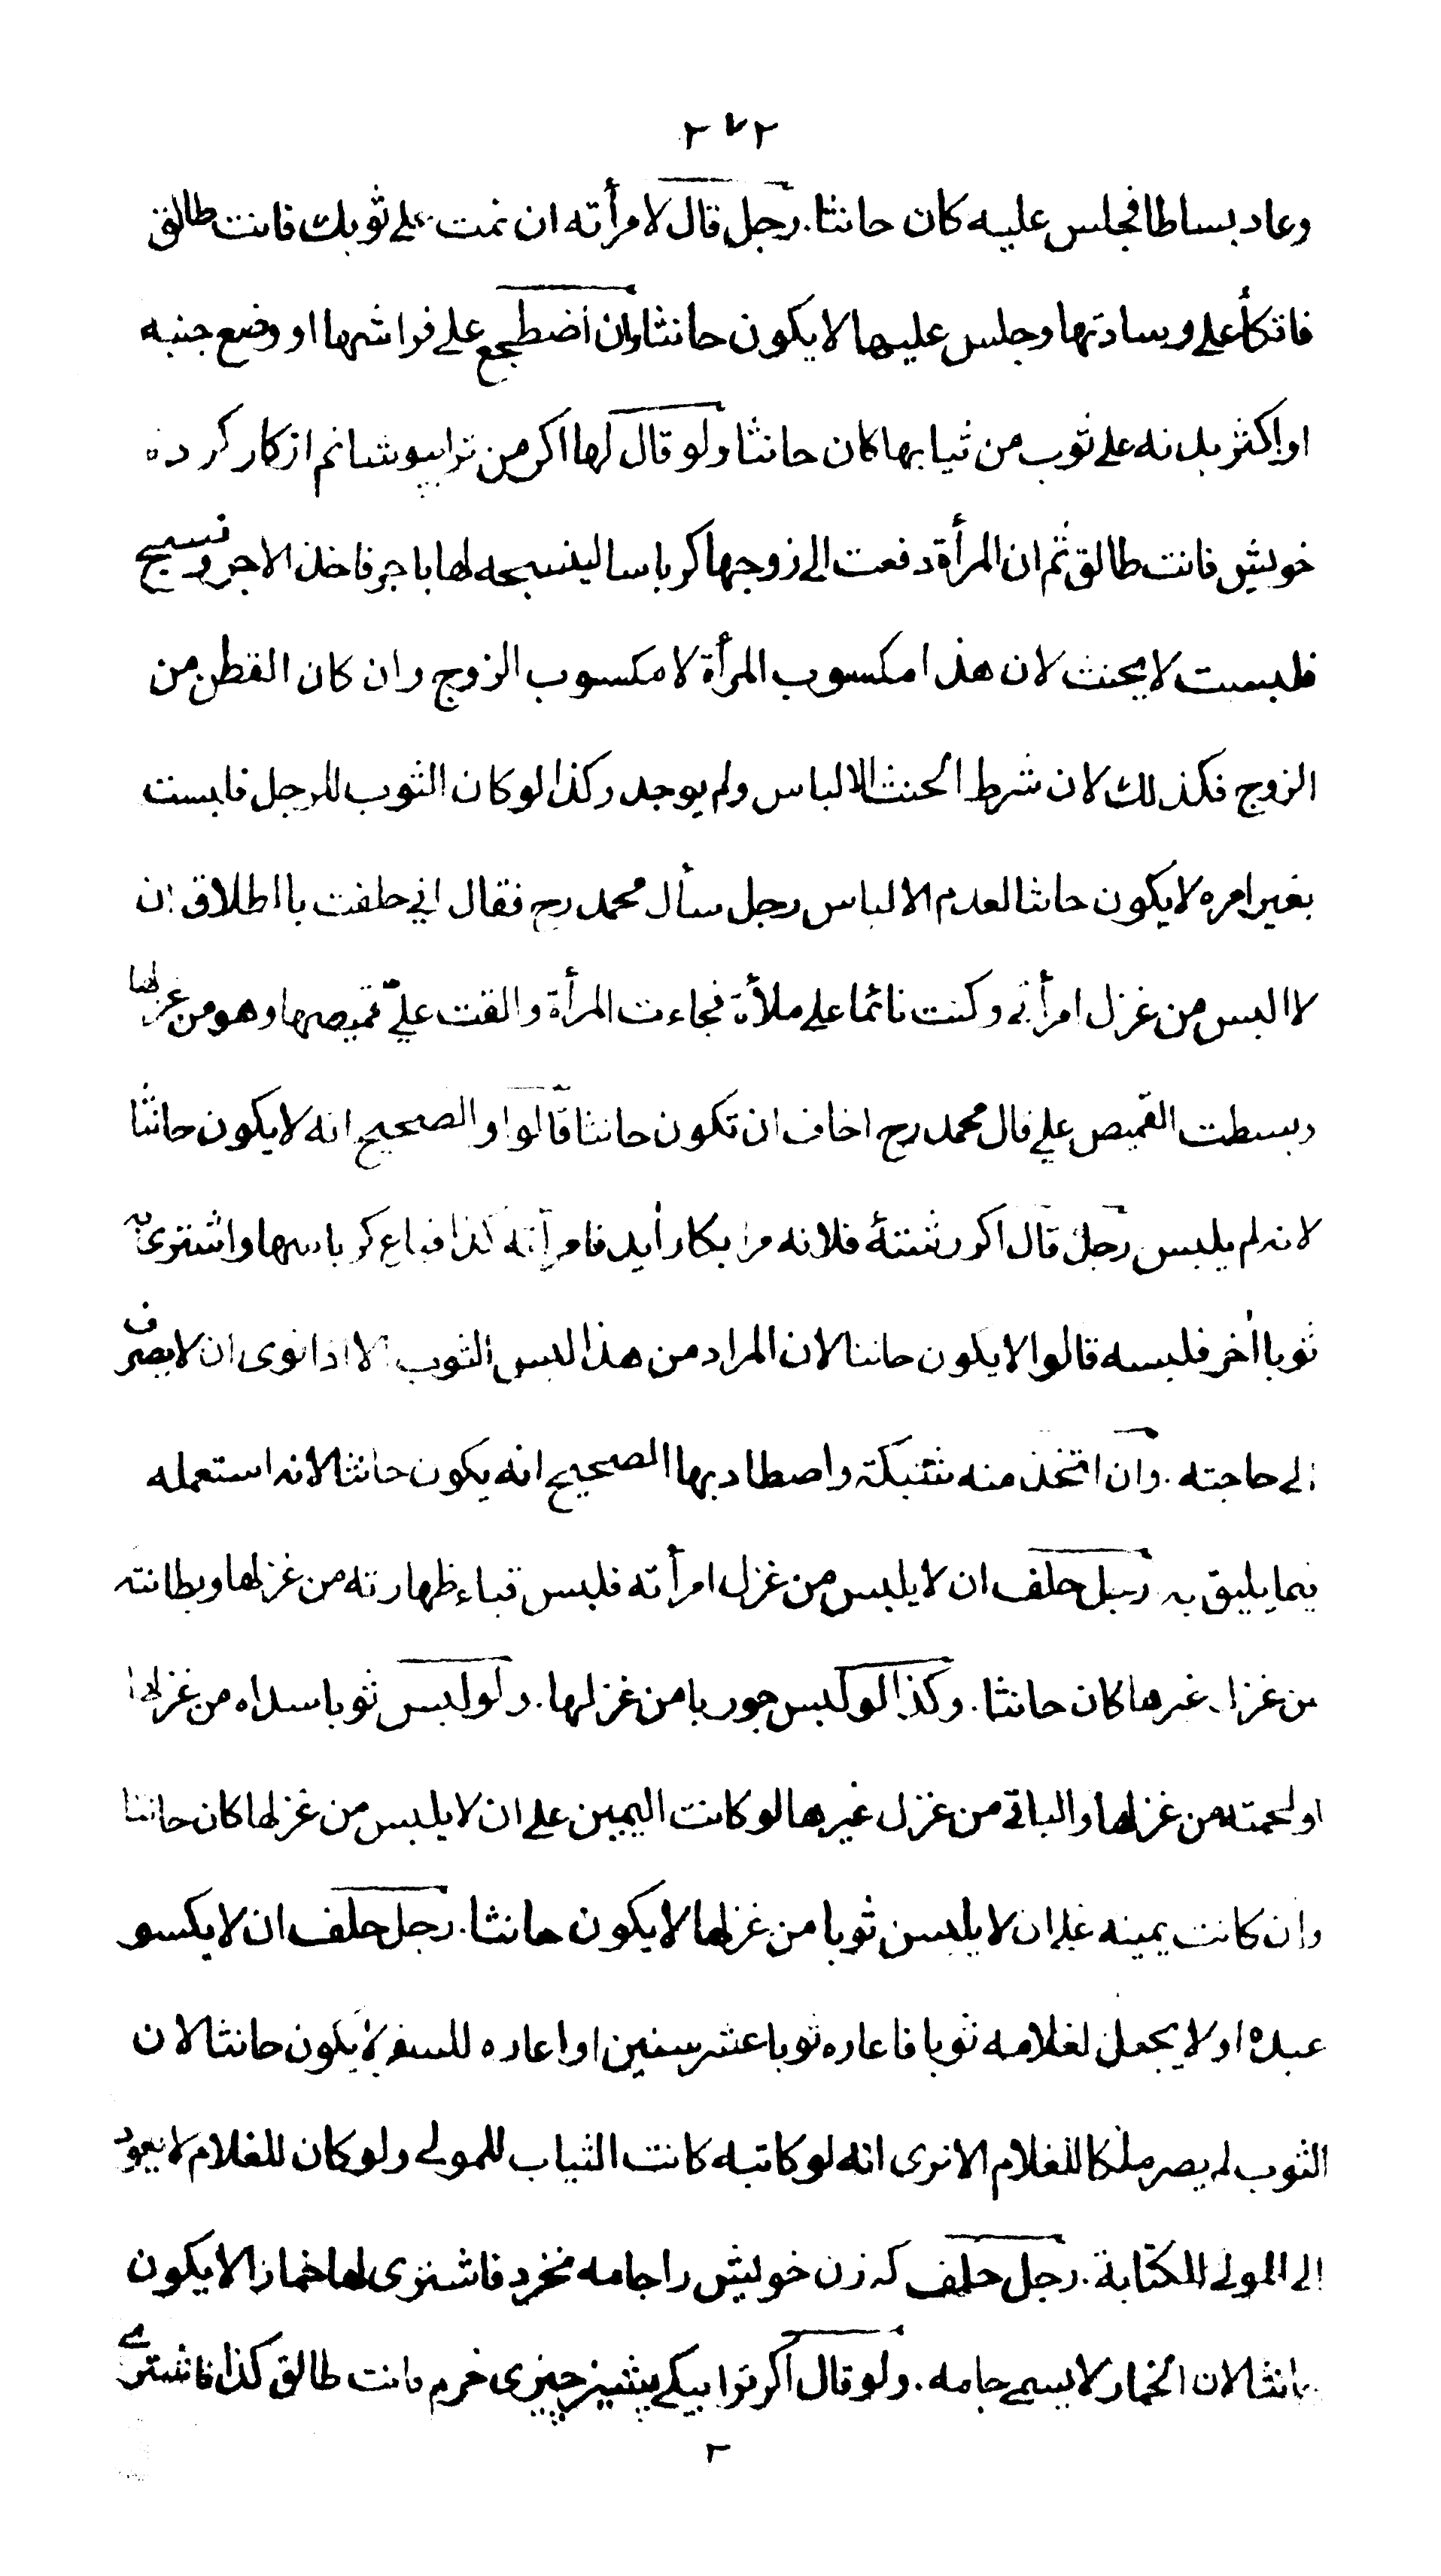 ٢٧٢
وعاد بساطا فجلس عليه كان حانثا. رجل قال لامرأته ان نمت على ثوبك فانت طالق
فاتكأ على وسادتها وجلس عليها لا يكون حانثا وان اضطجع على فراشها او وضع جنبه
او اكثر بدنه على ثوب من ثيابها كان حانثا ولو قال لها اكر من ترا بپوشانم از كار كرده
خويش فانت طالق ثم ان المرأة دفعت الى زوجها كرباسا لينسجه لها باجر فاخذ الاجر ونسج
فلبست لا يحنث لان هذا مكسوب المرأة لا مكسوب الزوج وان كان القطن من
الزوج فكذلك لان شرط الحنث الالباس ولم يوجد وكذا لو كان الثوب للرجل فلبست
بغير امره لا يكون حانثا لعدم الالباس رجل سأل محمد رح فقال اني حلفت باالطلاق ان
لا البس من غزل امرأتي وكنت نائما على ملأة فجاءت المرأة والقت عليّ قميصها وهو من غزلها
وبسطت القميص علي قال محمد رح اخاف ان تكون حانثا قالوا والصحيح انه لا يكون حانثا
لانه لم يلبس رجل قال اكر رشتۀ فلانه مرا بكار آيد فامرأته كذا فباع كرباسها واشترى به
ثوبا آخر فلبسه قالوا لا يكون حانثا لان المراد من هذا لبس الثوب الا اذا نوى ان لا يصرف
الى حاجته. وان اتخذ منه شبكة واصطاد بها الصحيح انه يكون حانثا لانه استعمله
فيما يليق به رجل حلف ان لا يلبس من غزل امرأته فلبس قباء ظهارته من غزلها وبطانته
من غزل غيرها كان حانثا. وكذا لو لبس جوربا من غزلها. ولو لبس ثوبا سداه من غزلها
او لحمته من غزلها والباقي من غزل غيرها لو كانت اليمين على ان لا يلبس من غزلها كان حانثا
وان كانت يمينه على ان لا يلبس ثوبا من غزلها لا يكون حانثا. رجل حلف ان لا يكسو
عبده او لا يجعل لغلامه ثوبا فاعاره ثوبا عشر سنين او اعاره للسفر لا يكون حانثا لان
الثوب لم يصر ملكا للغلام الا ترى انه لو كاتبه كانت الثياب للمولى ولو كان للغلام لا يعود
الى المولى بالكتابة. رجل حلف كه زن خويش را جامه نخرد فاشترى لها خمارا لا يكون
حانثا لان الخمار لا يسمى جامه. ولو قال اكر ترا بيكى پشيز چيزى خرم فانت طالق كذا فاشترى
٣